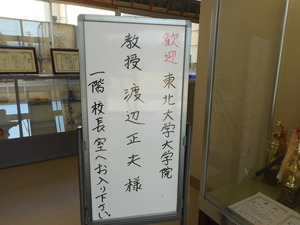 歓迎 東北大学大学院
教授 渡辺正夫様
一階 校長室へお入り下さい。